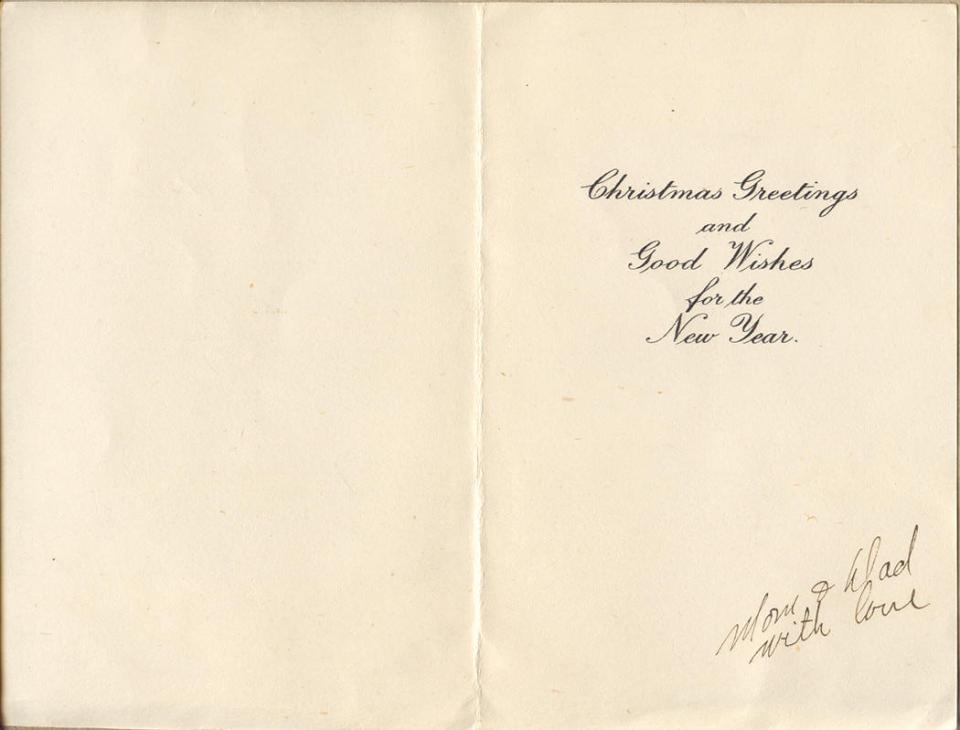 Christmas Greetings
and
Good Wishes
for the
New Year.
Mom & Dad
with love